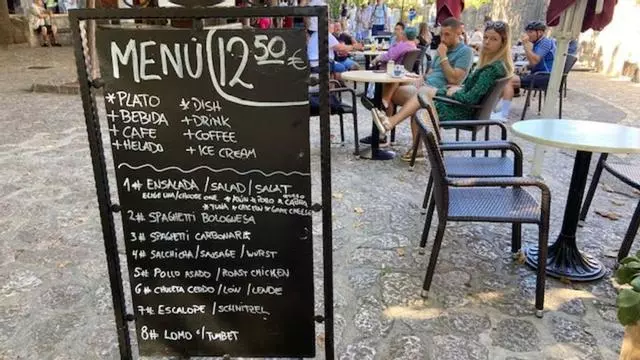 MENÚ 12 50 €
*PLATO *DISH
+BEBIDA +DRINK
+CAFE +COFFEE
+HELADO +ICE CREAM
1# ENSALADA/SALAD/SALAT
ELIGE UM/CHOOSE ONE *ATÚN *POLLO *QUESO CABRA
*TUNA *CHICKEN *GOAT CHEESE
2# SPAGHETTI BOLOGNESA
3# SPAGHETTI CARBONARA
4# SALCHICHA/SAUSAGE/WURST
5# POLLO ASADO/ROAST CHICKEN
6# CHULETA CERDO/LOIN/LENDE
7# ESCALOPE/SCHNITZEL
8# LOMO C/TUMBET